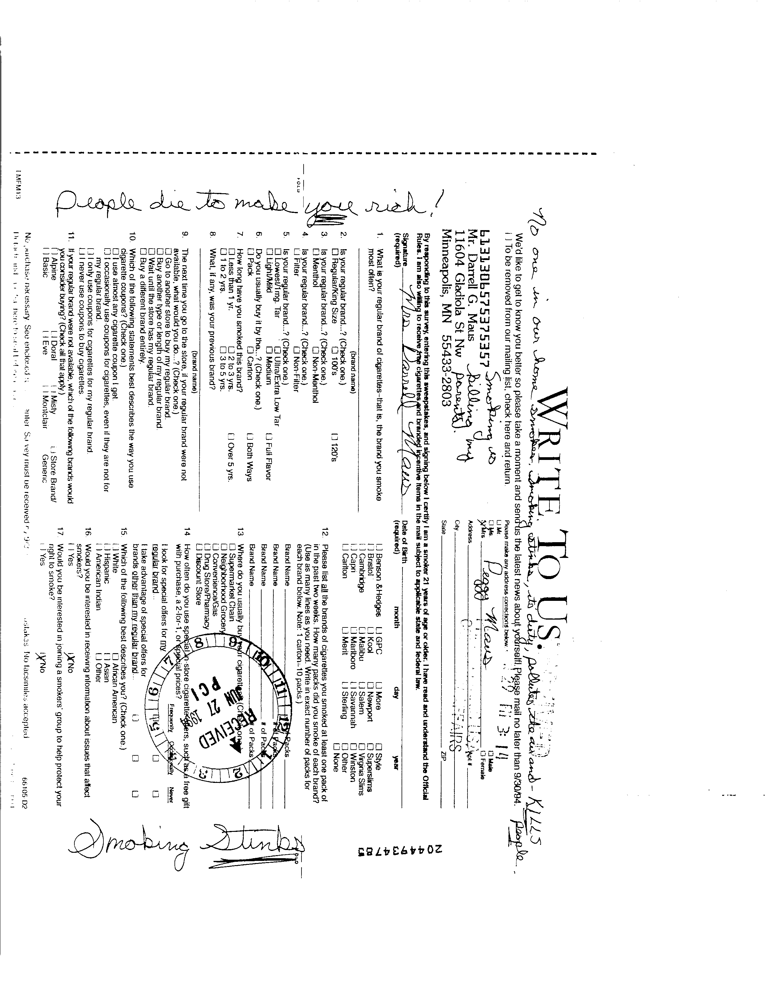 WRITE TO US.
No one in our home smokes. Smoking stinks, its dirty, pollutes the air and - KILLS people.
We'd like to get to know you better so please take a moment and send us the latest news about yourself! Please mail no later than 9/30/94.
To be removed from our mailing list, check here and return
Please make any address corrections below
Mr.
Ms.
Mrs. Peggy Maus
Male
Female
Address
City
State
ZIP
Mr. Darrell G. Maus
11604 Gladiola St Nw
Minneapolis, MN 55433-2803
Smoking is killing my parents!
By responding to this survey, entering this sweepstakes, and signing below I certify I am a smoker 21 years of age or older. I have read and understand the Official
Rules. I am also willing to receive free cigarettes and branded incentive items in the mail subject to applicable state and federal law.
Signature Mrs Darrell Maus
(required)
Date of Birth
(required)
month day year
1. What is your regular brand of cigarettes–that is, the brand you smoke
most often?
(brand name)
2. Is your regular brand...? (Check one.)
Regular/King Size 100's 120's
3. Is your regular brand...? (Check one.)
Menthol Non-Menthol
4. Is your regular brand...? (Check one.)
Filter Non-Filter
5. Is your regular brand...? (Check one.)
Lowest/1mg. Tar Ultra/Extra Low Tar
Light/Mild Medium Full Flavor
6. Do you usually buy it by the...? (Check one.)
Pack Carton Both Ways
7. How long have you smoked this brand?
Less than 1 yr. 2 to 3 yrs. Over 5 yrs.
1 to 2 yrs. 3 to 5 yrs.
8. What, if any, was your previous brand?
(brand name)
9. The next time you go to the store, if your regular brand were not
available, what would you do...? (Check one.)
Go to another store to buy my regular brand
Buy another type or length of my regular brand
Wait until the store has my regular brand
Buy a different brand entirely.
10. Which of the following statements best describes the way you use
cigarette coupons? (Check one.)
I use almost any cigarette coupon I get
I occasionally use coupons for cigarettes, even if they are not for
my regular brand
I only use coupons for cigarettes for my regular brand
I never use coupons to buy cigarettes
11. If your regular brand were not available, which of the following brands would
you consider buying? (Check all that apply)
Alpine Doral Misty Store Brand/
Basic Eve Montclair Generic
12. Please list all the brands of cigarettes you smoked at least one pack of
in the past two weeks. How many packs did you smoke of each brand?
(Use as many lines as you need. Write in exact number of packs for
each brand below. Note: 1 carton=10 packs)
Benson & Hedges GPC More Style
Bristol Kool Newport Superslims
Cambridge Malibu Salem Virginia Slims
Capri Marlboro Savannah Winston
Carlton Merit Sterling Other
None
Brand Name # of Packs
Brand Name # of Packs
Brand Name # of Packs
Brand Name # of Packs
13. Where do you usually buy your cigarettes? (Check one)
Supermarket Chain
Neighborhood Grocery
Convenience/Gas
Drug Store/Pharmacy
Discount Store
RECEIVED
JUN 27
PCI
14. How often do you use special in-store cigarette offers, such as a free gift
with purchase, a 2-for-1, or special prices?
Frequently Occasionally Never
I look for special offers for my
regular brand
I take advantage of special offers for
brands other than my regular brand
15. Which of the following best describes you? (Check one.)
White African American
Hispanic Asian
American Indian Other
16. Would you be interested in receiving information about issues that affect
smokers?
Yes X No
17. Would you be interested in joining a smokers' group to help protect your
right to smoke?
Yes X No
People die to make you rich!
Smoking Stinks
2044934785
66105 D2